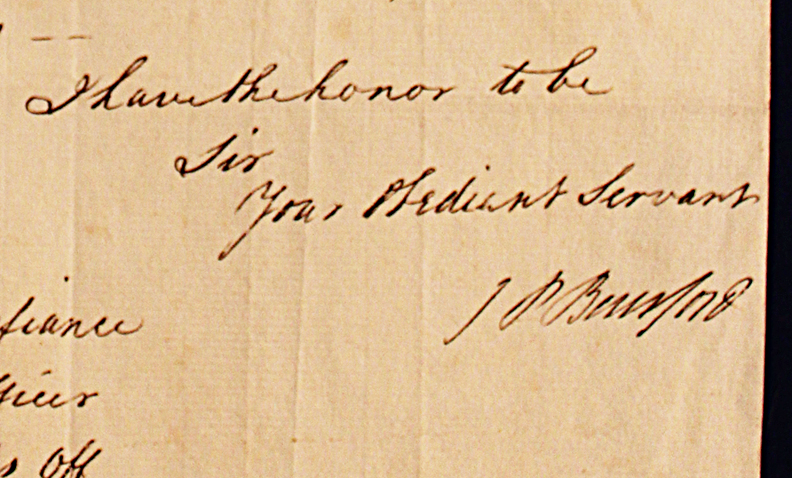 I have the honor to be
Sir
Your Obedient Servant
J P Beresford
fiance
ficer
Off